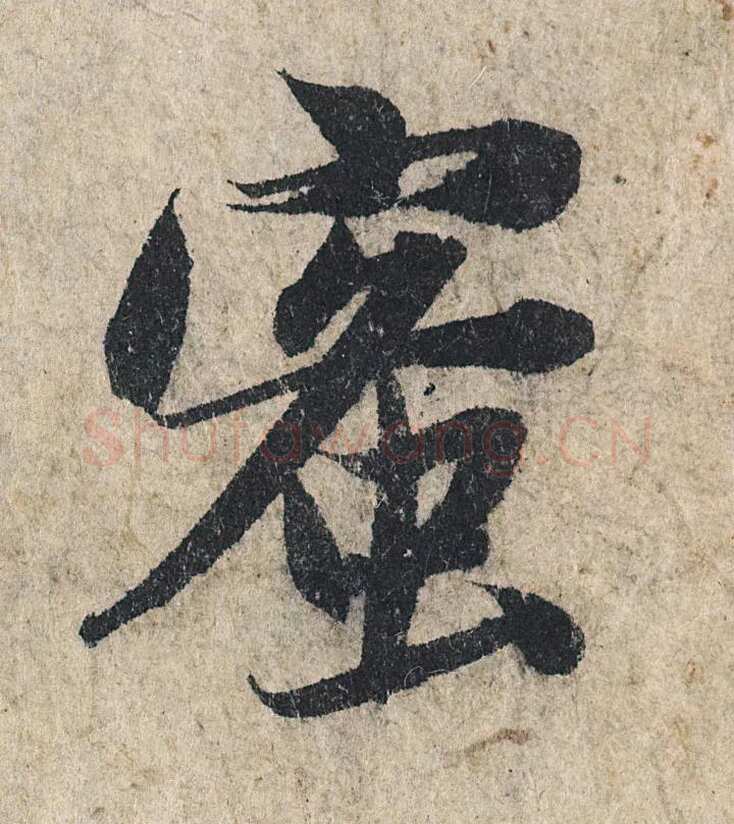 蜜
Shufawang.CN